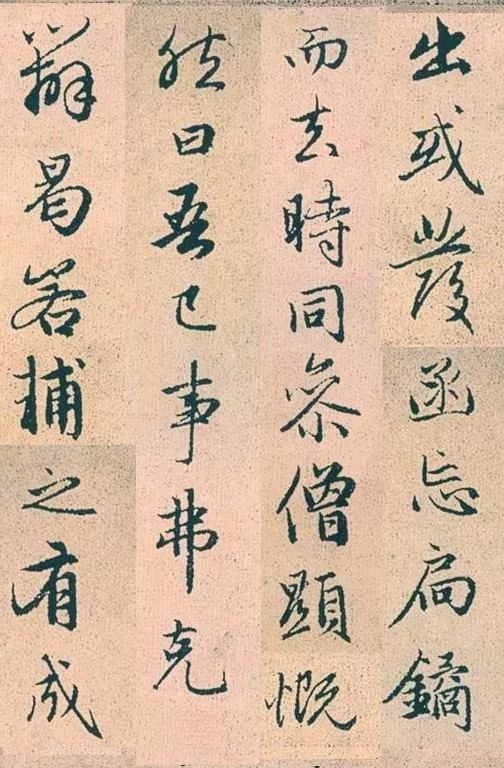 出或發函忘扃鐍
而去時同參僧顯慨
然曰吾已事弗克
辦曷若捕之有成